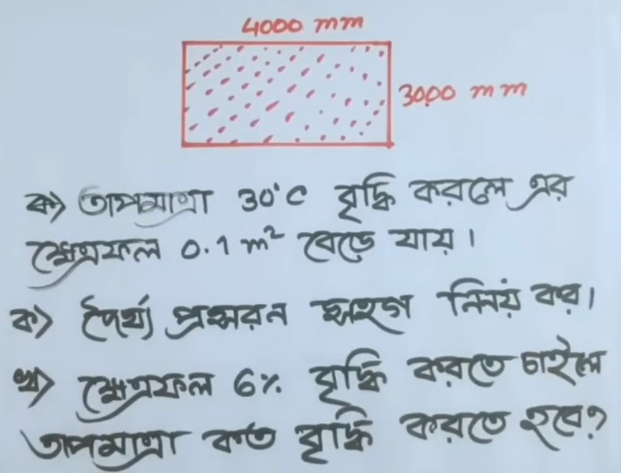 4000 mm
3000 mm
ক) তাপমাত্রা 30°C বৃদ্ধি করলে এর
ক্ষেত্রফল 0.1 m² বেড়ে যায়।
ক) দৈর্ঘ্য প্রসারন সহগ নির্নয় কর।
খ) ক্ষেত্রফল 6% বৃদ্ধি করতে চাইলে
তাপমাত্রা কত বৃদ্ধি করতে হবে?